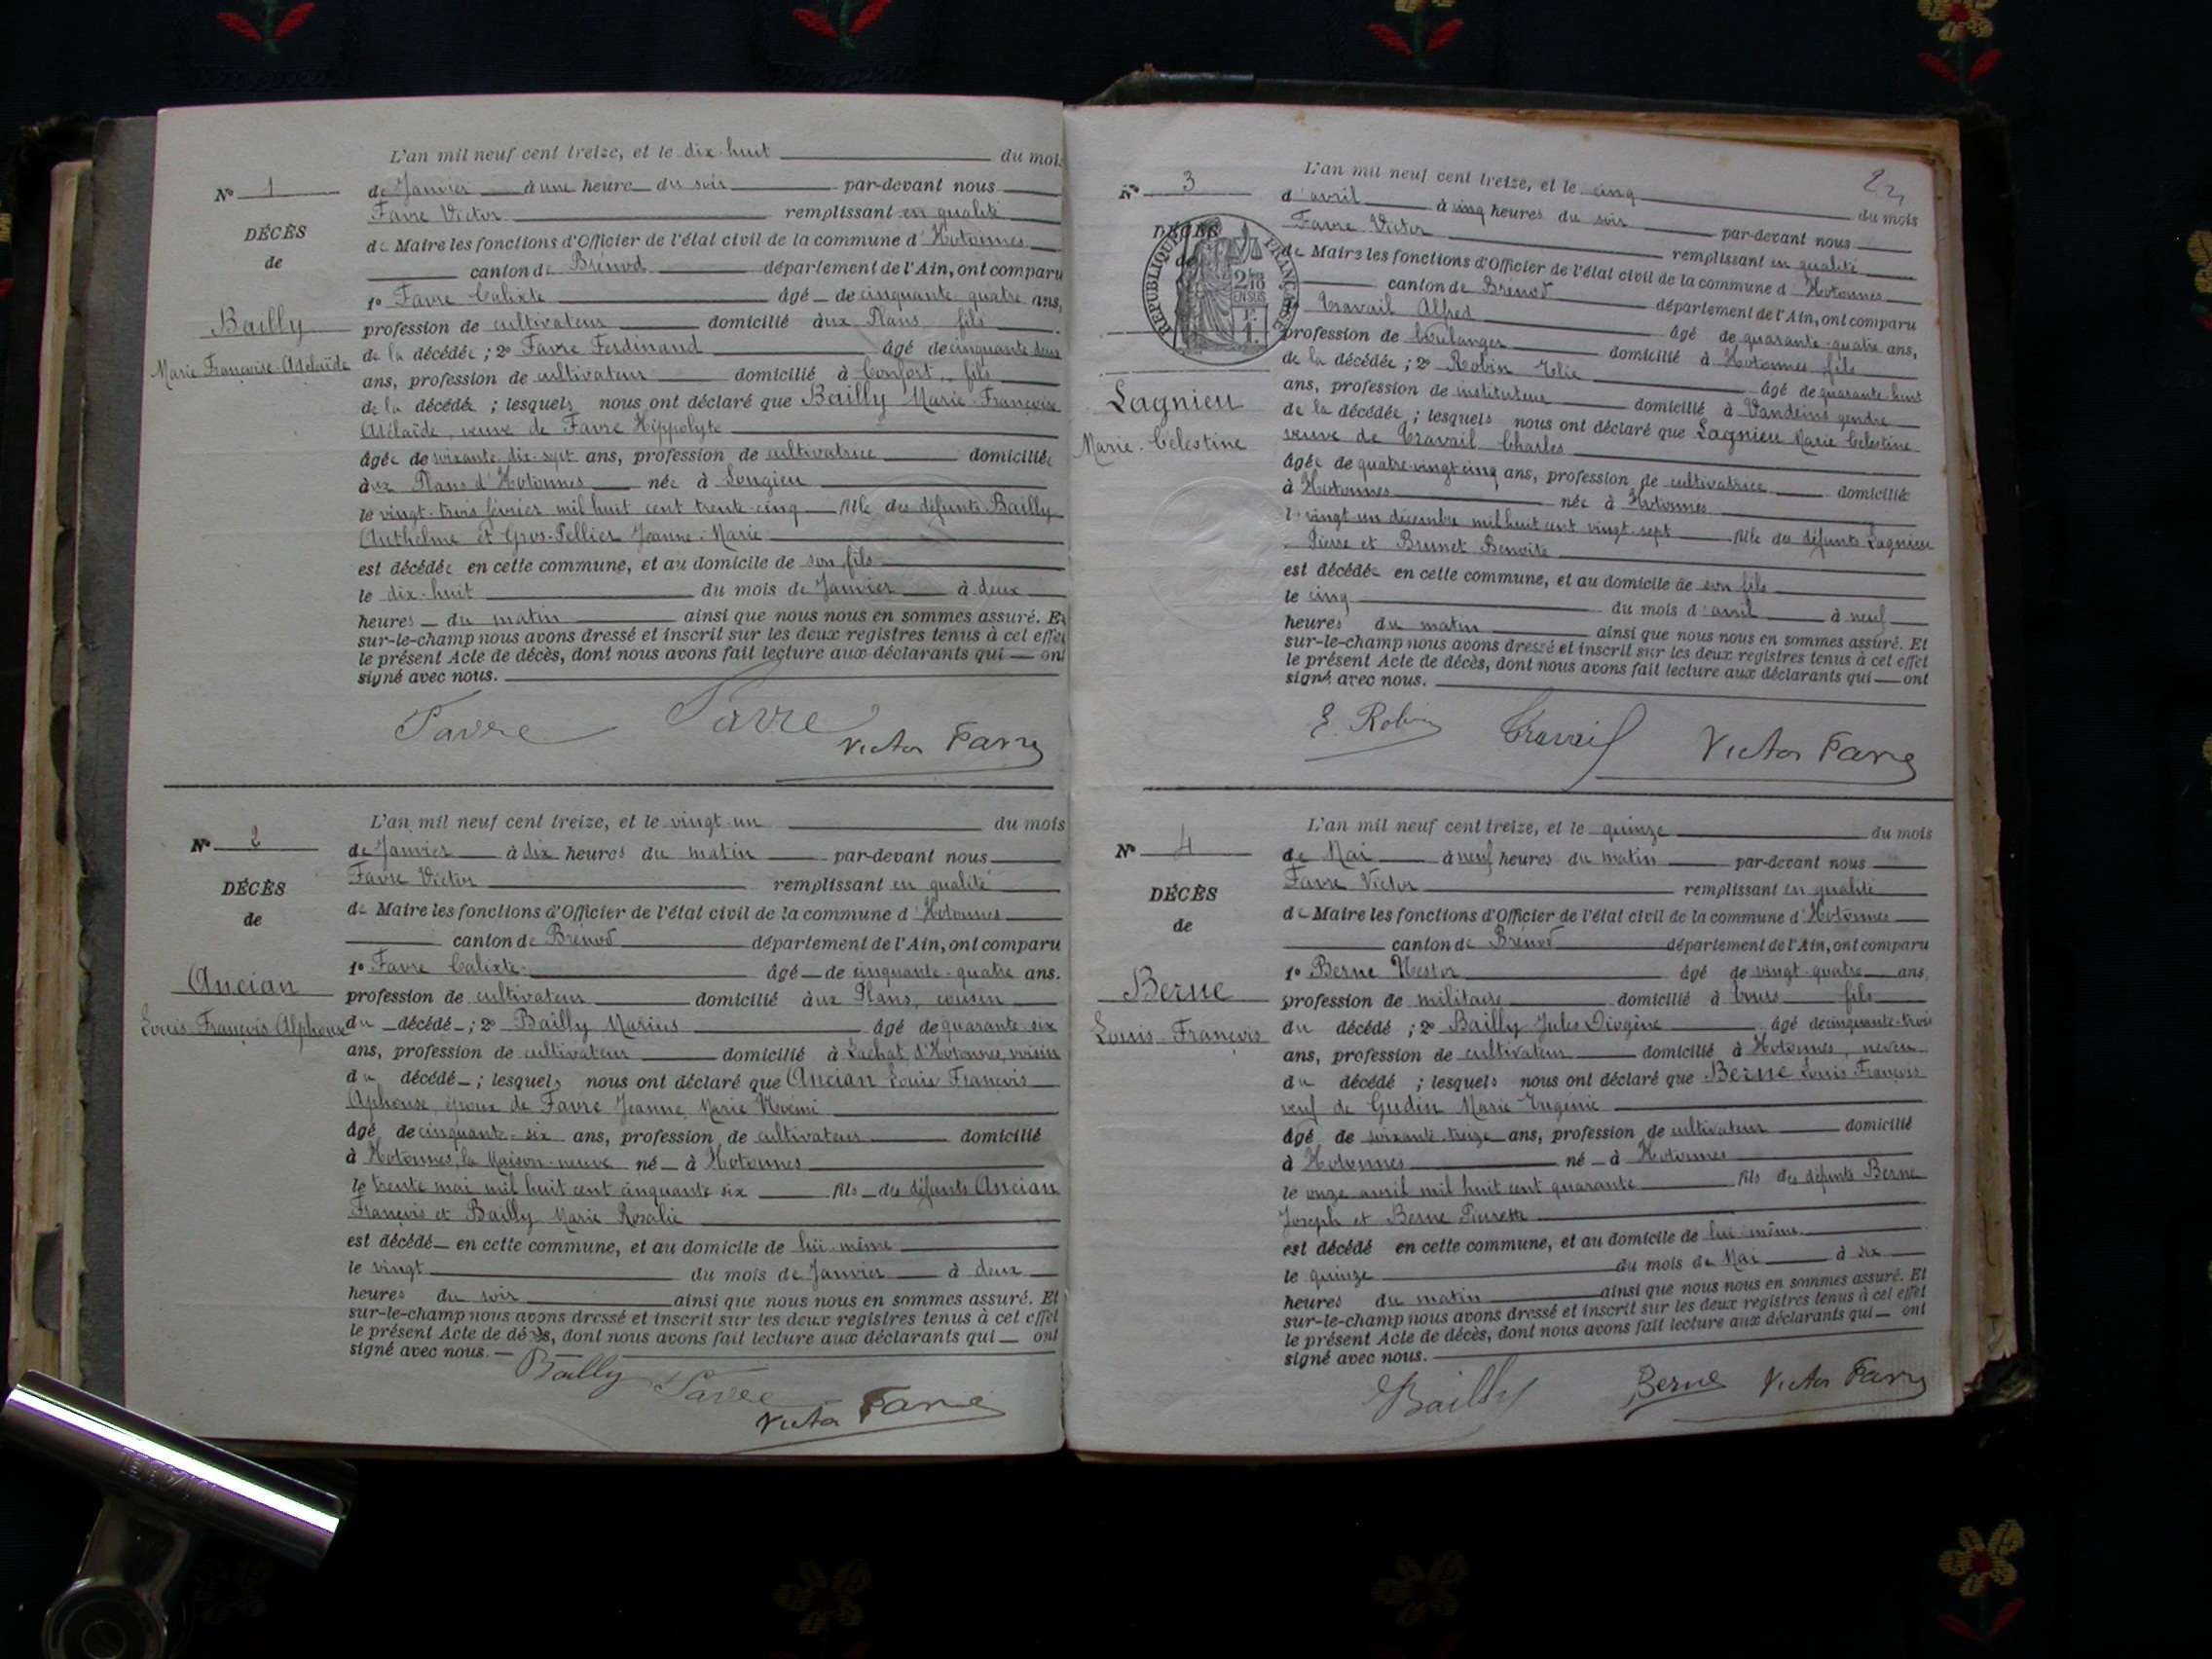 L'an mil neuf cent treize, et le dix-huit du mois
N° 1
de Janvier à une heure du soir par-devant nous
Favre Victor remplissant en qualité
DÉCÈS
de Maire les fonctions d'Officier de l'état civil de la commune d'Hotonnes
de
canton de Brénod département de l'Ain, ont comparu
1° Favre Calixte âgé de cinquante quatre ans,
Bailly
profession de cultivateur domicilié aux Plans, fils
Marie Françoise Adélaïde
de la décédée ; 2° Favre Ferdinand âgé de cinquante deux
ans, profession de cultivateur domicilié à Confort, fils
de la décédée ; lesquels nous ont déclaré que Bailly Marie Françoise
Adélaïde, veuve de Favre Hippolyte
âgée de soixante dix-sept ans, profession de cultivatrice domiciliée
aux Plans d'Hotonnes née à Songieu
le vingt-trois février mil huit cent trente-cinq fille des défunts Bailly
Anthelme et Gros-Pellier Jeanne-Marie
est décédée en cette commune, et au domicile de son fils
le dix-huit du mois de Janvier à deux
heures du matin ainsi que nous nous en sommes assuré. Et
sur-le-champ nous avons dressé et inscrit sur les deux registres tenus à cet effet
le présent Acte de décès, dont nous avons fait lecture aux déclarants qui ont
signé avec nous.
Favre Favre Victor Favre
L'an mil neuf cent treize, et le vingt-un du mois
N° 2
de Janvier à dix heures du matin par-devant nous
Favre Victor remplissant en qualité
DÉCÈS
de Maire les fonctions d'Officier de l'état civil de la commune d'Hotonnes
de
canton de Brénod département de l'Ain, ont comparu
1° Favre Calixte âgé de cinquante-quatre ans.
Ancian
profession de cultivateur domicilié aux Plans, cousin
Louis François Alphonse
du décédé ; 2° Bailly Marius âgé de quarante six
ans, profession de cultivateur domicilié à Lachat d'Hotonnes, voisin
du décédé ; lesquels nous ont déclaré que Ancian Louis François
Aphonse, époux de Favre Jeanne Marie Noémi
âgé de cinquante-six ans, profession de cultivateur domicilié
à Hotonnes, la Maison-neuve né à Hotonnes
le trente mai mil huit cent cinquante six fils des défunts Ancian
François et Bailly Marie Rosalie
est décédé en cette commune, et au domicile de lui-même
le vingt du mois de Janvier à deux
heures du soir ainsi que nous nous en sommes assuré. Et
sur-le-champ nous avons dressé et inscrit sur les deux registres tenus à cet effet
le présent Acte de décès, dont nous avons fait lecture aux déclarants qui ont
signé avec nous.
Bailly Favre Victor Favre
L'an mil neuf cent treize, et le cinq du mois
N° 3
d'avril à cinq heures du soir par-devant nous
Favre Victor remplissant en qualité
DÉCÈS
de Maire les fonctions d'Officier de l'état civil de la commune d'Hotonnes
de
RÉPUBLIQUE FRANÇAISE
EN SUS
canton de Brénod département de l'Ain, ont comparu
1° Travail Alfred âgé de quarante-quatre ans,
profession de boulanger domicilié à Hotonnes fils
de la décédée ; 2° Robin Elie âgé de quarante-huit
Lagnieu
ans, profession de instituteur domicilié à Vandeins gendre
Marie-Célestine
de la décédée ; lesquels nous ont déclaré que Lagnieu Marie Célestine
veuve de Travail Charles
âgée de quatre-vingt cinq ans, profession de cultivatrice domiciliée
à Hotonnes née à Hotonnes
le vingt un décembre mil huit cent vingt-sept fille des défunts Lagnieu
Pierre et Brunet Benoite
est décédée en cette commune, et au domicile de son fils
le cinq du mois d'avril à neuf
heures du matin ainsi que nous nous en sommes assuré. Et
sur-le-champ nous avons dressé et inscrit sur les deux registres tenus à cet effet
le présent Acte de décès, dont nous avons fait lecture aux déclarants qui ont
signé avec nous.
E. Robin Travail Victor Favre
L'an mil neuf cent treize, et le quinze du mois
N° 4
de Mai à neuf heures du matin par-devant nous
Favre Victor remplissant en qualité
DÉCÈS
de Maire les fonctions d'Officier de l'état civil de la commune d'Hotonnes
de
canton de Brénod département de l'Ain, ont comparu
1° Berne Nestor âgé de vingt-quatre ans,
Berne
profession de militaire domicilié à Tours fils
Louis-François
du décédé ; 2° Bailly Jules Diogène âgé de cinquante-trois
ans, profession de cultivateur domicilié à Hotonnes, neveu
du décédé ; lesquels nous ont déclaré que Berne Louis François
veuf de Gudin Marie-Eugénie
âgé de soixante-treize ans, profession de cultivateur domicilié
à Hotonnes né à Hotonnes
le onze avril mil huit cent quarante fils des défunts Berne
Joseph et Berne Pierrette
est décédé en cette commune, et au domicile de lui-même
le quinze du mois de Mai à six
heures du matin ainsi que nous nous en sommes assuré. Et
sur-le-champ nous avons dressé et inscrit sur les deux registres tenus à cet effet
le présent Acte de décès, dont nous avons fait lecture aux déclarants qui ont
signé avec nous.
Bailly Berne Victor Favre